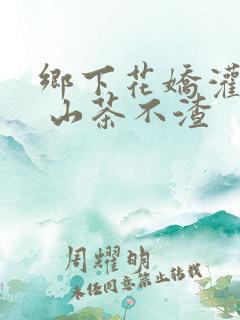 鄉下花嬌灌
山茶不渣
周耀明
未经同意禁止转载